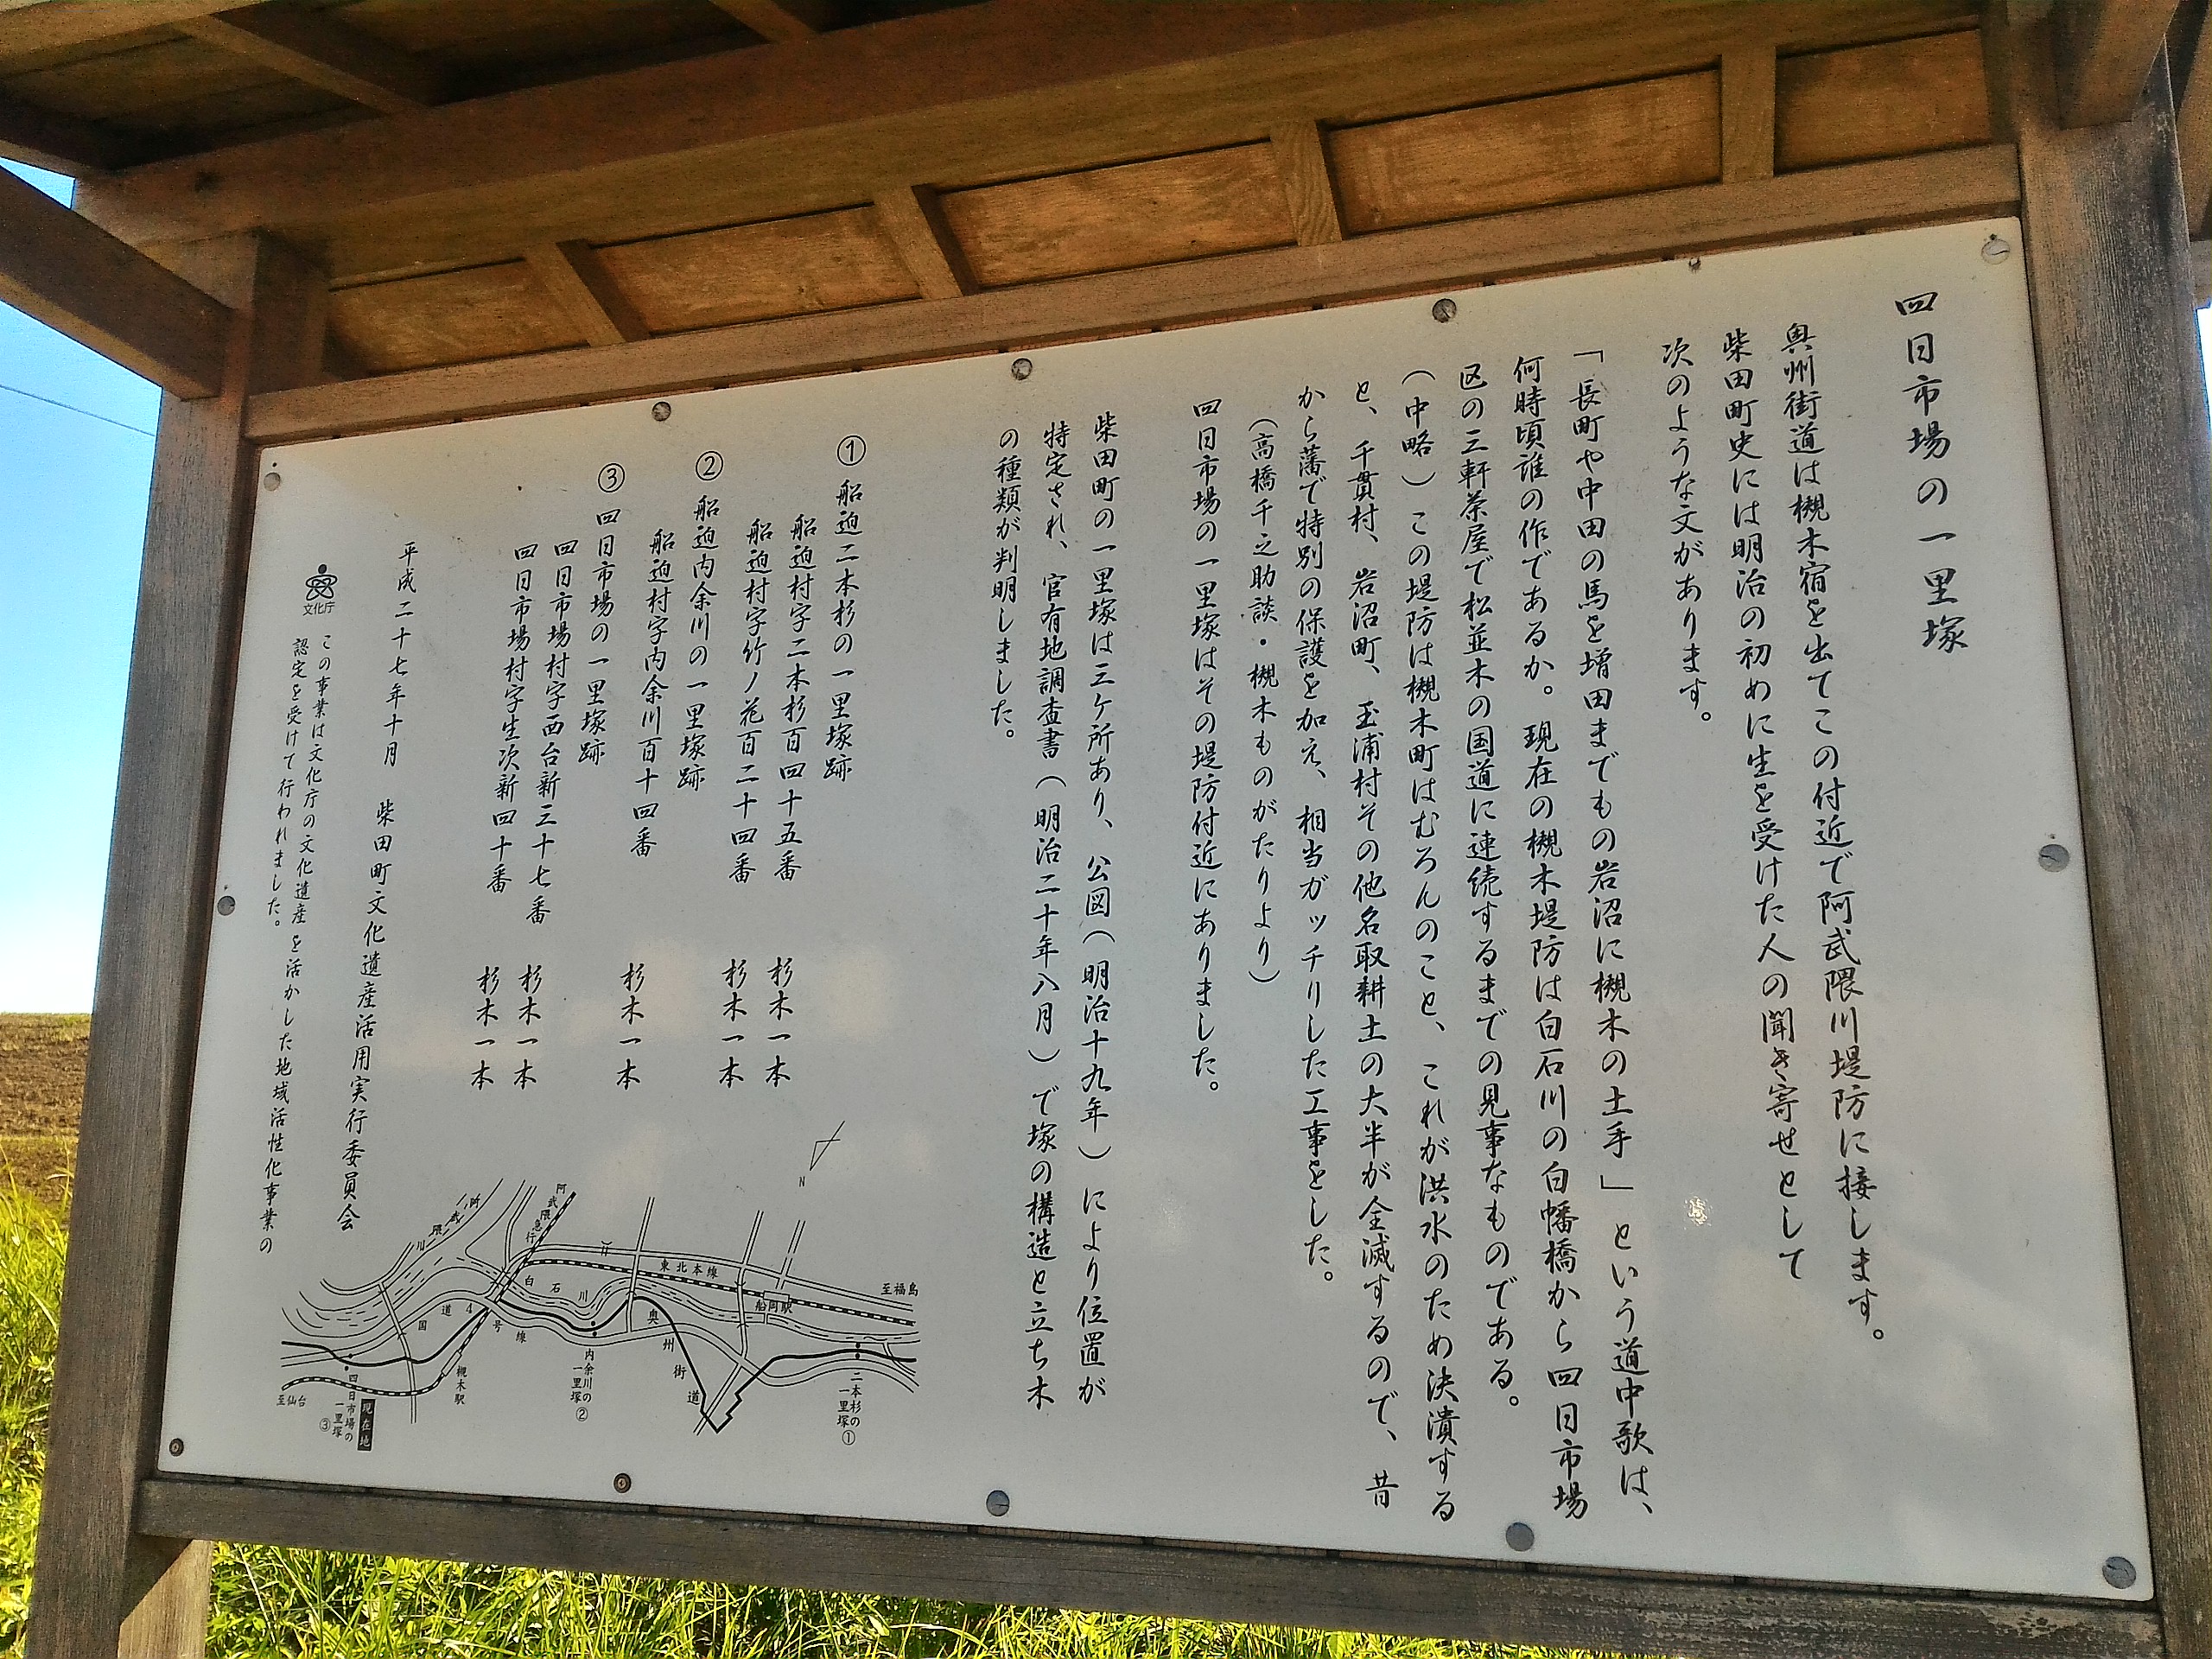 四日市場の一里塚
奥州街道は槻木宿を出てこの付近で阿武隈川堤防に接します。
柴田町史には明治の初めに生を受けた人の聞き寄せとして
次のような文があります。
「長町や中田の馬を増田までもの岩沼に槻木の土手」という道中歌は、
何時頃誰の作であるか。現在の槻木堤防は白石川の白幡橋から四日市場
区の三軒茶屋で松並木の国道に連続するまでの見事なものである。
(中略)この堤防は槻木町はむろんのこと、これが洪水のため決潰する
と、千貫村、岩沼町、玉浦村その他名取耕土の大半が全滅するので、昔
から藩で特別の保護を加え、相当ガッチリした工事をした。
(高橋千之助談・槻木ものがたりより)
四日市場の一里塚はその堤防付近にありました。
柴田町の一里塚は三ケ所あり、公図(明治十九年)により位置が
特定され、官有地調査書(明治二十年八月)で塚の構造と立ち木
の種類が判明しました。
① 船迫二本杉の一里塚跡
船迫村字二本杉百四十五番 杉木一本
船迫村字竹ノ花百二十四番 杉木一本
② 船迫内余川の一里塚跡
船迫村字内余川百十四番 杉木一本
③ 四日市場の一里塚跡
四日市場村字西台新三十七番 杉木一本
四日市場村字生次新四十番 杉木一本
平成二十七年十月 柴田町文化遺産活用実行委員会
文化庁
この事業は文化庁の文化遺産を活かした地域活性化事業の
認定を受けて行われました。
N
阿武隈川
阿武隈急行
東北本線
至福島
白石川
船岡駅
国道4号線
奥州街道
槻木駅
至仙台
二本杉の一里塚①
内余川の一里塚②
四日市場の一里塚③
現在地